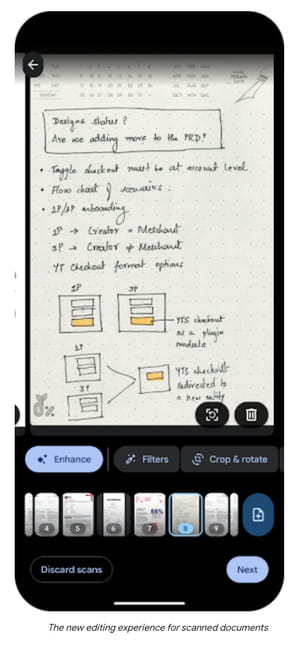 Designs status?
Are we adding more to the PRD?
• Toggle checkout must be at account level
• Flow chart of scenarios.
• 1P/3P onboarding
1P → Creator = Merchant
3P → Creator ≠ Merchant
YT Checkout format options
1P 3P
YTS checkout
as a plugin
module
1P
3P
YTS checkout
redirected to
a new entity
Enhance
Filters
Crop & rotate
4
5
6
7
8
9
Discard scans
Next
The new editing experience for scanned documents